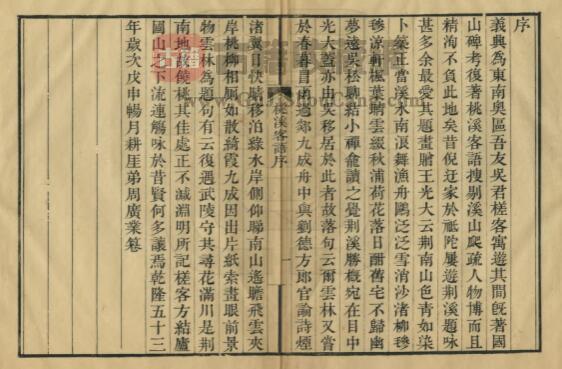 序
義興為東南奧區吾友吳君槎客寓遊其間既著國
山碑考復著桃溪客語搜剔溪山爬疏人物博而且
精洵不負此地矣昔倪迂家於祗陀屢遊荆溪題咏
甚多余最愛其題畫贈王光大云荆南山色青如染
卜築正當溪水南浪舞漁舟鷗泛泛雪消沙渚柳毿
毿涼軒楓葉晴雲綴秋浦荷花落日酣舊宅不歸幽
夢遠吳松聊結小禪龕讀之覺荆溪勝概宛在目中
光大蓋亦由吳移居於此者故落句云爾雲林又嘗
於春暮自南過郊九成舟中與劉德方郎官論詩煙
桃溪客語序
一
渚翼日快晴移泊綠水岸側仰聯南山遙瞻飛雲夾
岸桃柳相厠如散綺霞九成因出片紙索畫眼前景
物雲林為題句有云復遇武陵守其尋花滿川是荆
南地故饒桃其佳處正不減淵明所記槎客方結廬
國山之下流連觴咏於昔賢何多讓焉乾隆五十三
年歲次戊申暢月耕厓弟周廣業